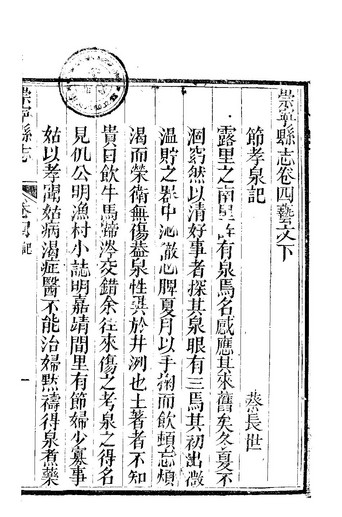 崇寧縣志卷四藝文下
節孝泉記
蔡長世
露里之南里許有泉焉名感應其來舊矣冬夏不
涸窈然以清好事者探其泉眼有三焉其初出微
溫貯之器中沁徹心脾夏月以手掬而飲頓忘煩
渴而榮衛無傷蓋泉性異於井洌也土著者不知
貴曰飲牛馬蹄涔交錯余往來傷之考泉之得名
見仉公明漁村小誌明嘉靖間里有節婦少寡事
姑以孝聞姑病渴症醫不能治婦默禱得泉煮藥
崇寧縣志
卷四
記
一